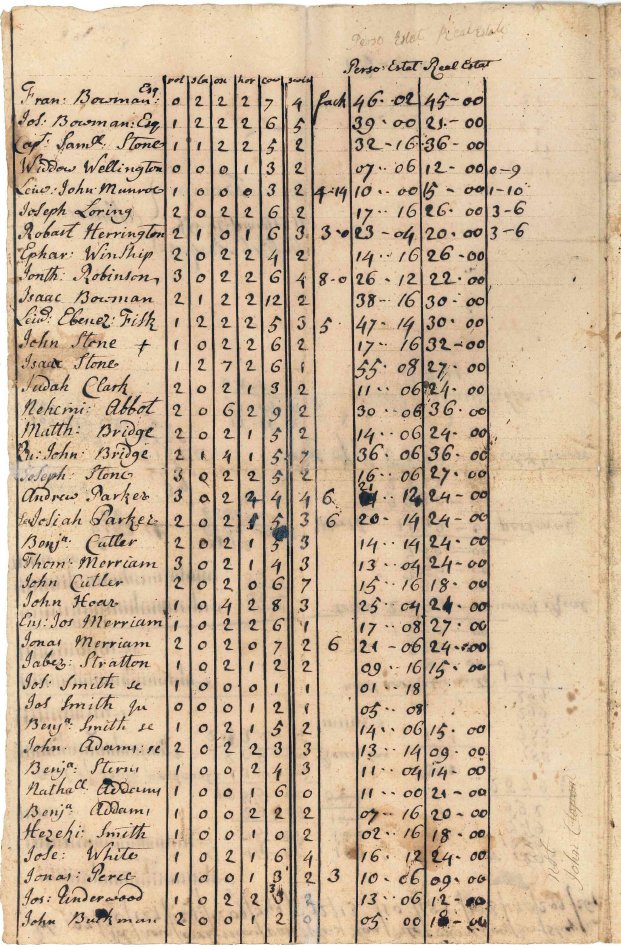 Perso Estat Real Estat
pol sla ox hor cow swin Perso: Estat Real Estat
Fran: Bowman: Esq 0 2 2 2 7 4 fack 46 · 02 45 - 00
Jos: Bowman: Esq 1 2 2 2 6 5 39 · 00 21 - 00
Capt: Samll: Stone 1 1 2 2 5 2 32 - 16 36 - 00
Widdow Wellington 0 0 0 1 3 2 07 · 06 12 - 00 0-9
Leiu: John Munroe 1 0 0 0 3 2 4-14 10 · 00 15 - 00 1-10
Joseph Loring 2 0 2 2 6 2 17 · 16 26 - 00 3-6
Robart Herrington 2 1 0 1 6 3 3-0 23 - 04 20 · 00 3-6
Ephar: Winship 2 0 2 2 4 2 14 · 16 26 - 00
Jonth: Robinson 3 0 2 2 6 4 8-0 26 - 12 22 · 00
Isaac Bowman 2 1 2 2 12 2 38 - 16 30 - 00
Leiu: Ebenez: Fisk 1 2 2 2 5 3 5 47 · 14 30 · 00
John Stone + 1 0 2 2 6 2 17 · 16 32 - 00
Isaac Stone 1 2 7 2 6 1 55 · 08 27 - 00
Judah Clark 2 0 2 1 3 2 11 · 06 24 - 00
Nehemi: Abbot 2 0 6 2 9 2 30 · 06 36 · 00
Matth: Bridge 2 0 2 1 5 2 14 · 06 24 - 00
John: Bridge 2 1 4 1 5 7 36 · 06 36 · 00
Joseph: Stone 3 0 2 2 5 2 16 · 06 27 · 00
Andrew Parker 3 0 2 4 4 4 6 21 · 12 24 - 00
Josiah Parker 2 0 2 1 5 3 6 20 · 14 24 - 00
Benja: Cutler 2 0 2 1 5 3 14 · 14 24 - 00
Thom: Merriam 3 0 2 1 4 3 13 · 04 24 - 00
John Cutler 2 0 2 0 6 7 15 · 16 18 · 00
John Hoar 1 0 4 2 8 3 25 · 04 24 · 00
Ens: Jos Merriam 1 0 2 2 6 1 17 · 08 27 - 00
Jonas Merriam 2 0 2 0 7 2 6 21 - 06 24 - 00
Jabez: Stratton 1 0 2 1 2 2 09 · 16 15 · 00
Jos: Smith se 1 0 0 0 1 1 01 · 18
Jos Smith ju 0 0 0 1 2 1 05 · 08
Benja: Smith se 1 0 2 1 5 2 14 · 06 15 · 00
John: Adams: se 2 0 2 2 3 3 13 · 14 09 · 00
Benja: Sterns 1 0 0 2 4 3 11 · 04 14 - 00
Nathall Addams 1 0 0 1 6 0 11 · 00 21 - 00
Benja Addams 1 0 0 2 2 2 07 · 16 20 - 00
Hezeki: Smith 1 0 0 1 0 2 02 · 16 18 · 00
Jose: White 1 0 2 1 6 4 16 · 12 24 · 00
Jonas: Perce 1 0 0 1 3 2 3 10 · 06 09 · 00
Jos: Underwood 1 0 2 2 3 2 13 · 06 12 - 00
John Buckman 2 0 0 1 2 0 05 · 00 18 - 00